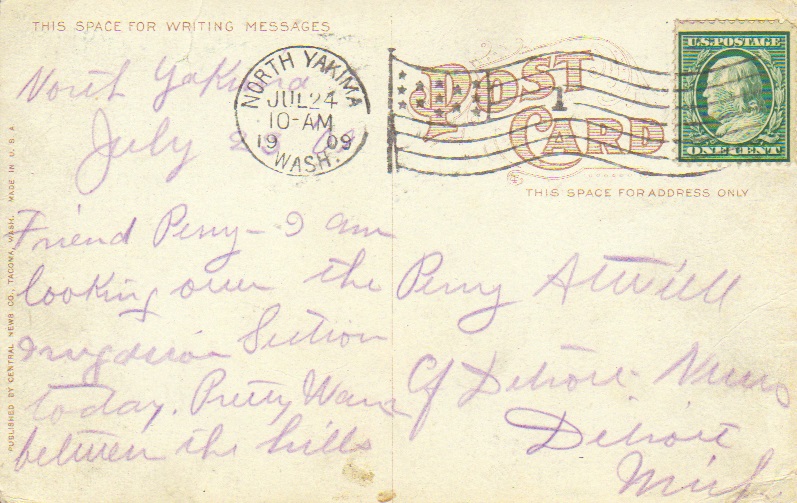 THIS SPACE FOR WRITING MESSAGES
North Yakima
July 23 09
Friend Perry - I am
looking over the
Irrigation Section
today. Pretty Warm
between the hills
PUBLISHED BY CENTRAL NEWS CO., TACOMA, WASH. MADE IN U.S.A
NORTH YAKIMA
JUL 24
10-AM
1909
WASH.
1
POST
CARD
U.S. POSTAGE
ONE CENT
THIS SPACE FOR ADDRESS ONLY
Perry Atwill
C/ Detroit News
Detroit
Mich.